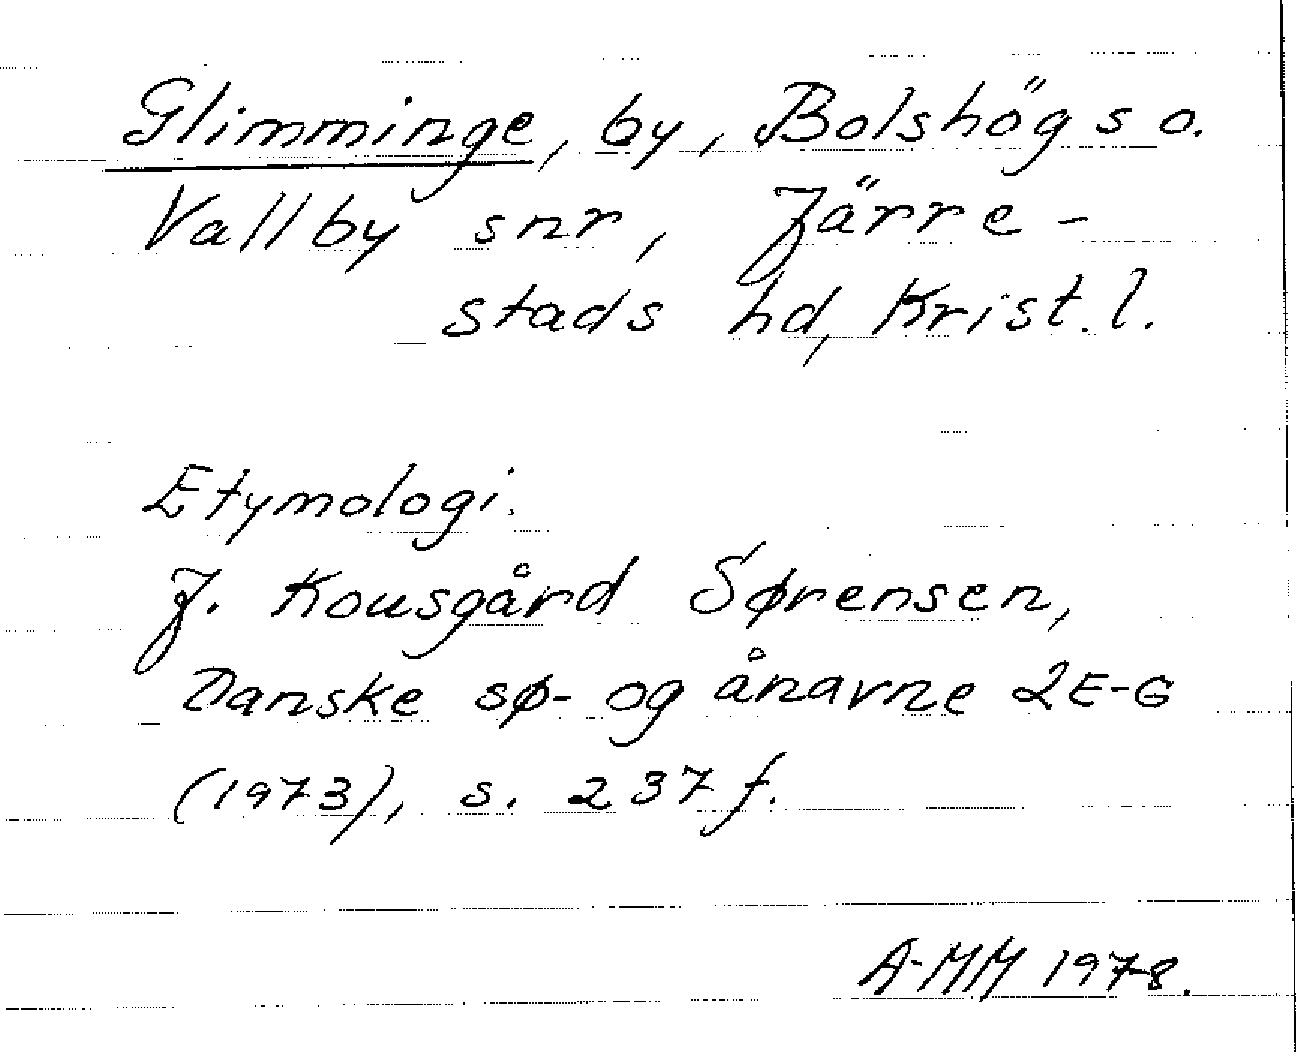 Glimminge, by, Bolshög s o.
Vallby snr, Järre-
stads hd, Krist. l.
Etymologi.
J. Kousgård Sørensen,
Danske sø- og ånavne 2 E-G
(1973), s. 237 f.
A-MM 1978.